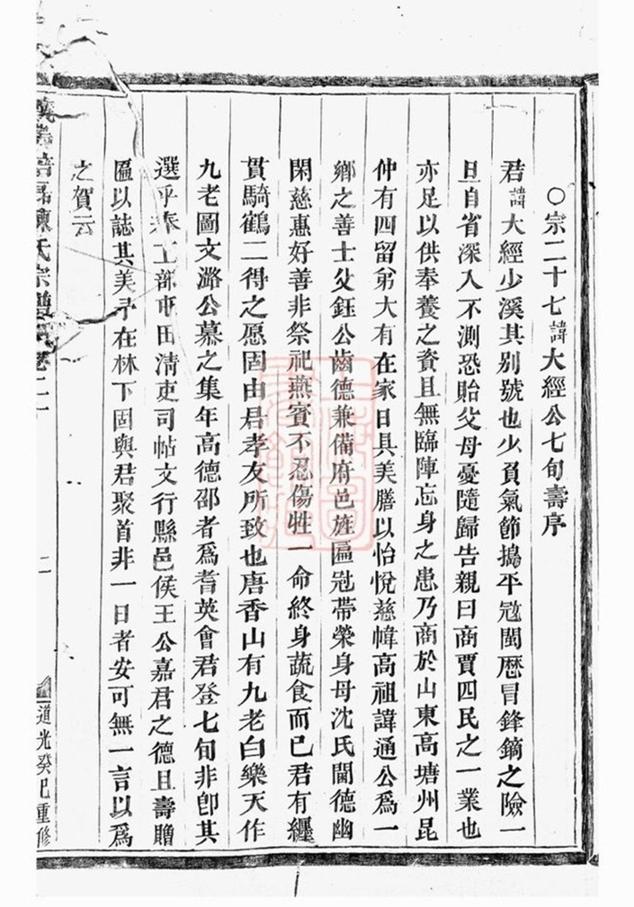 ○宗二十七諱大經公七旬壽序
君諱大經少溪其别號也少負氣節搗平冦閩歷冒鋒鏑之險一
旦自省深入不測恐貽父母憂隨歸告親曰商賈四民之一業也
亦足以供奉養之資且無臨陣忘身之患乃商於山東高塘州昆
仲有四留弟大有在家日具美膳以怡悅慈幃高祖諱通公爲一
鄉之善士父鈺公齒德兼備府邑旌匾冠帶榮身母沈氏閫德幽
閑慈惠好善非祭祀燕賓不忍傷牲一命終身蔬食而已君有纏
貫騎鶴二得之愿固由君孝友所致也唐香山有九老白樂天作
九老圖文潞公慕之集年高德邵者爲耆英會君登七旬非卽其
選乎奉工部屯田清吏司帖文行縣邑侯王公嘉君之德且壽贈
匾以誌其美予在林下固與君聚首非一日者安可無一言以爲
之賀云
陳氏宗譜 卷二
二
道光癸巳重修